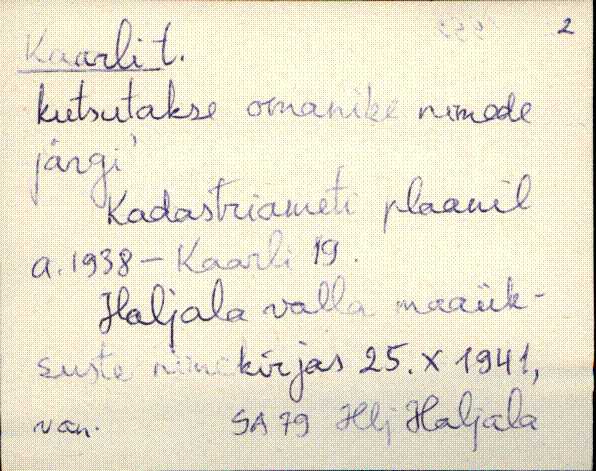 2
Kaarli t.
kutsutakse omanike nimede
järgi
Kadastriameti plaanil
a. 1938 – Kaarli 19.
Haljala valla maaük-
suste nimekirjas 25. X 1941,
van. SA 79 Hlj Haljala